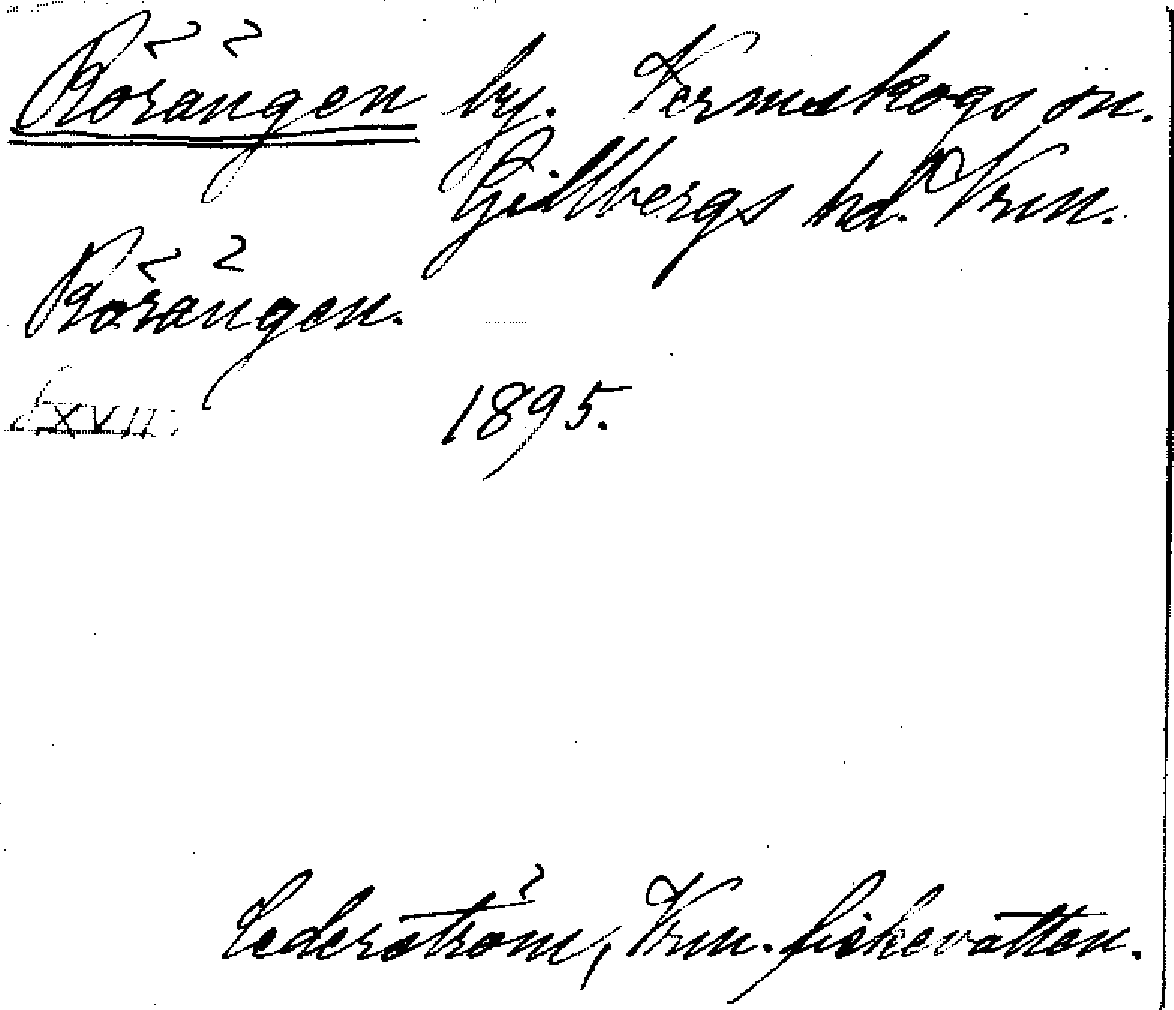 Rörängen by. Vermskogs sn.
Gillbergs hd. Vrm.
Rörängen.
1895.
Cederström, Vrm. fiskevatten.